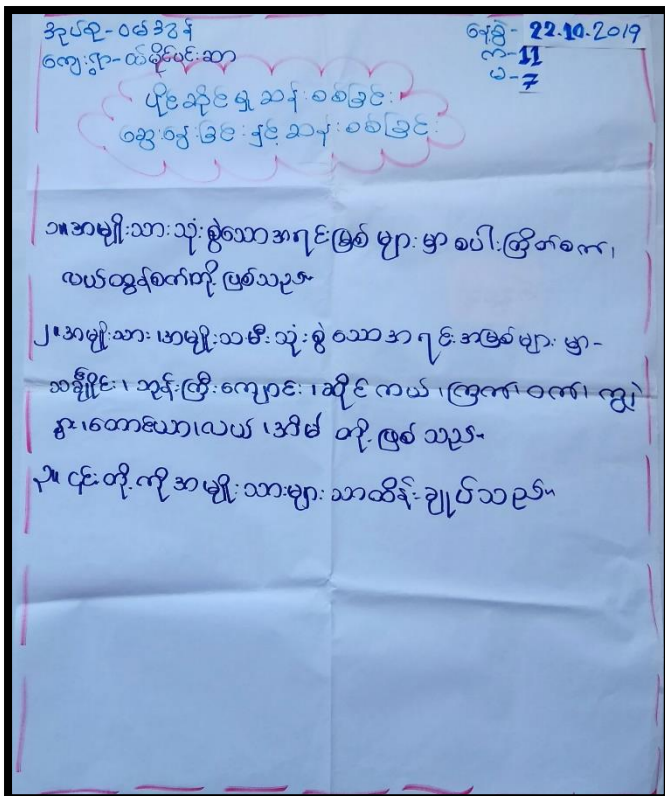 အုပ်စု-ဝမ်အွန်
နေ့စွဲ- 22.10.2019
ကျေးရွာ-ထမိုင်ပင်းဆာ
က-11
မ-7
ပိုင်ဆိုင်မှုဆန်းစစ်ခြင်း
ဆွေးနွေးခြင်းနှင့်ဆန်းစစ်ခြင်း
၁။အမျိုးသားသုံးစွဲသောအရင်းမြစ်များမှာစပါးကြိတ်စက်၊
လယ်ထွန်စက်တို့ဖြစ်သည်။
၂။အမျိုးသား၊အမျိုးသမီးသုံးစွဲသောအရင်းအမြစ်များမှာ-
သချိုင်း၊ဘုန်းကြီးကျောင်း၊ဆိုင်ကယ်၊ကြက်၊ဝက်၊ကျွဲ
နွား၊တောင်ယာ၊လယ်၊အိမ်တို့ဖြစ်သည်။
၃။၎င်းတို့ကိုအမျိုးသားများသာထိန်းချုပ်သည်။